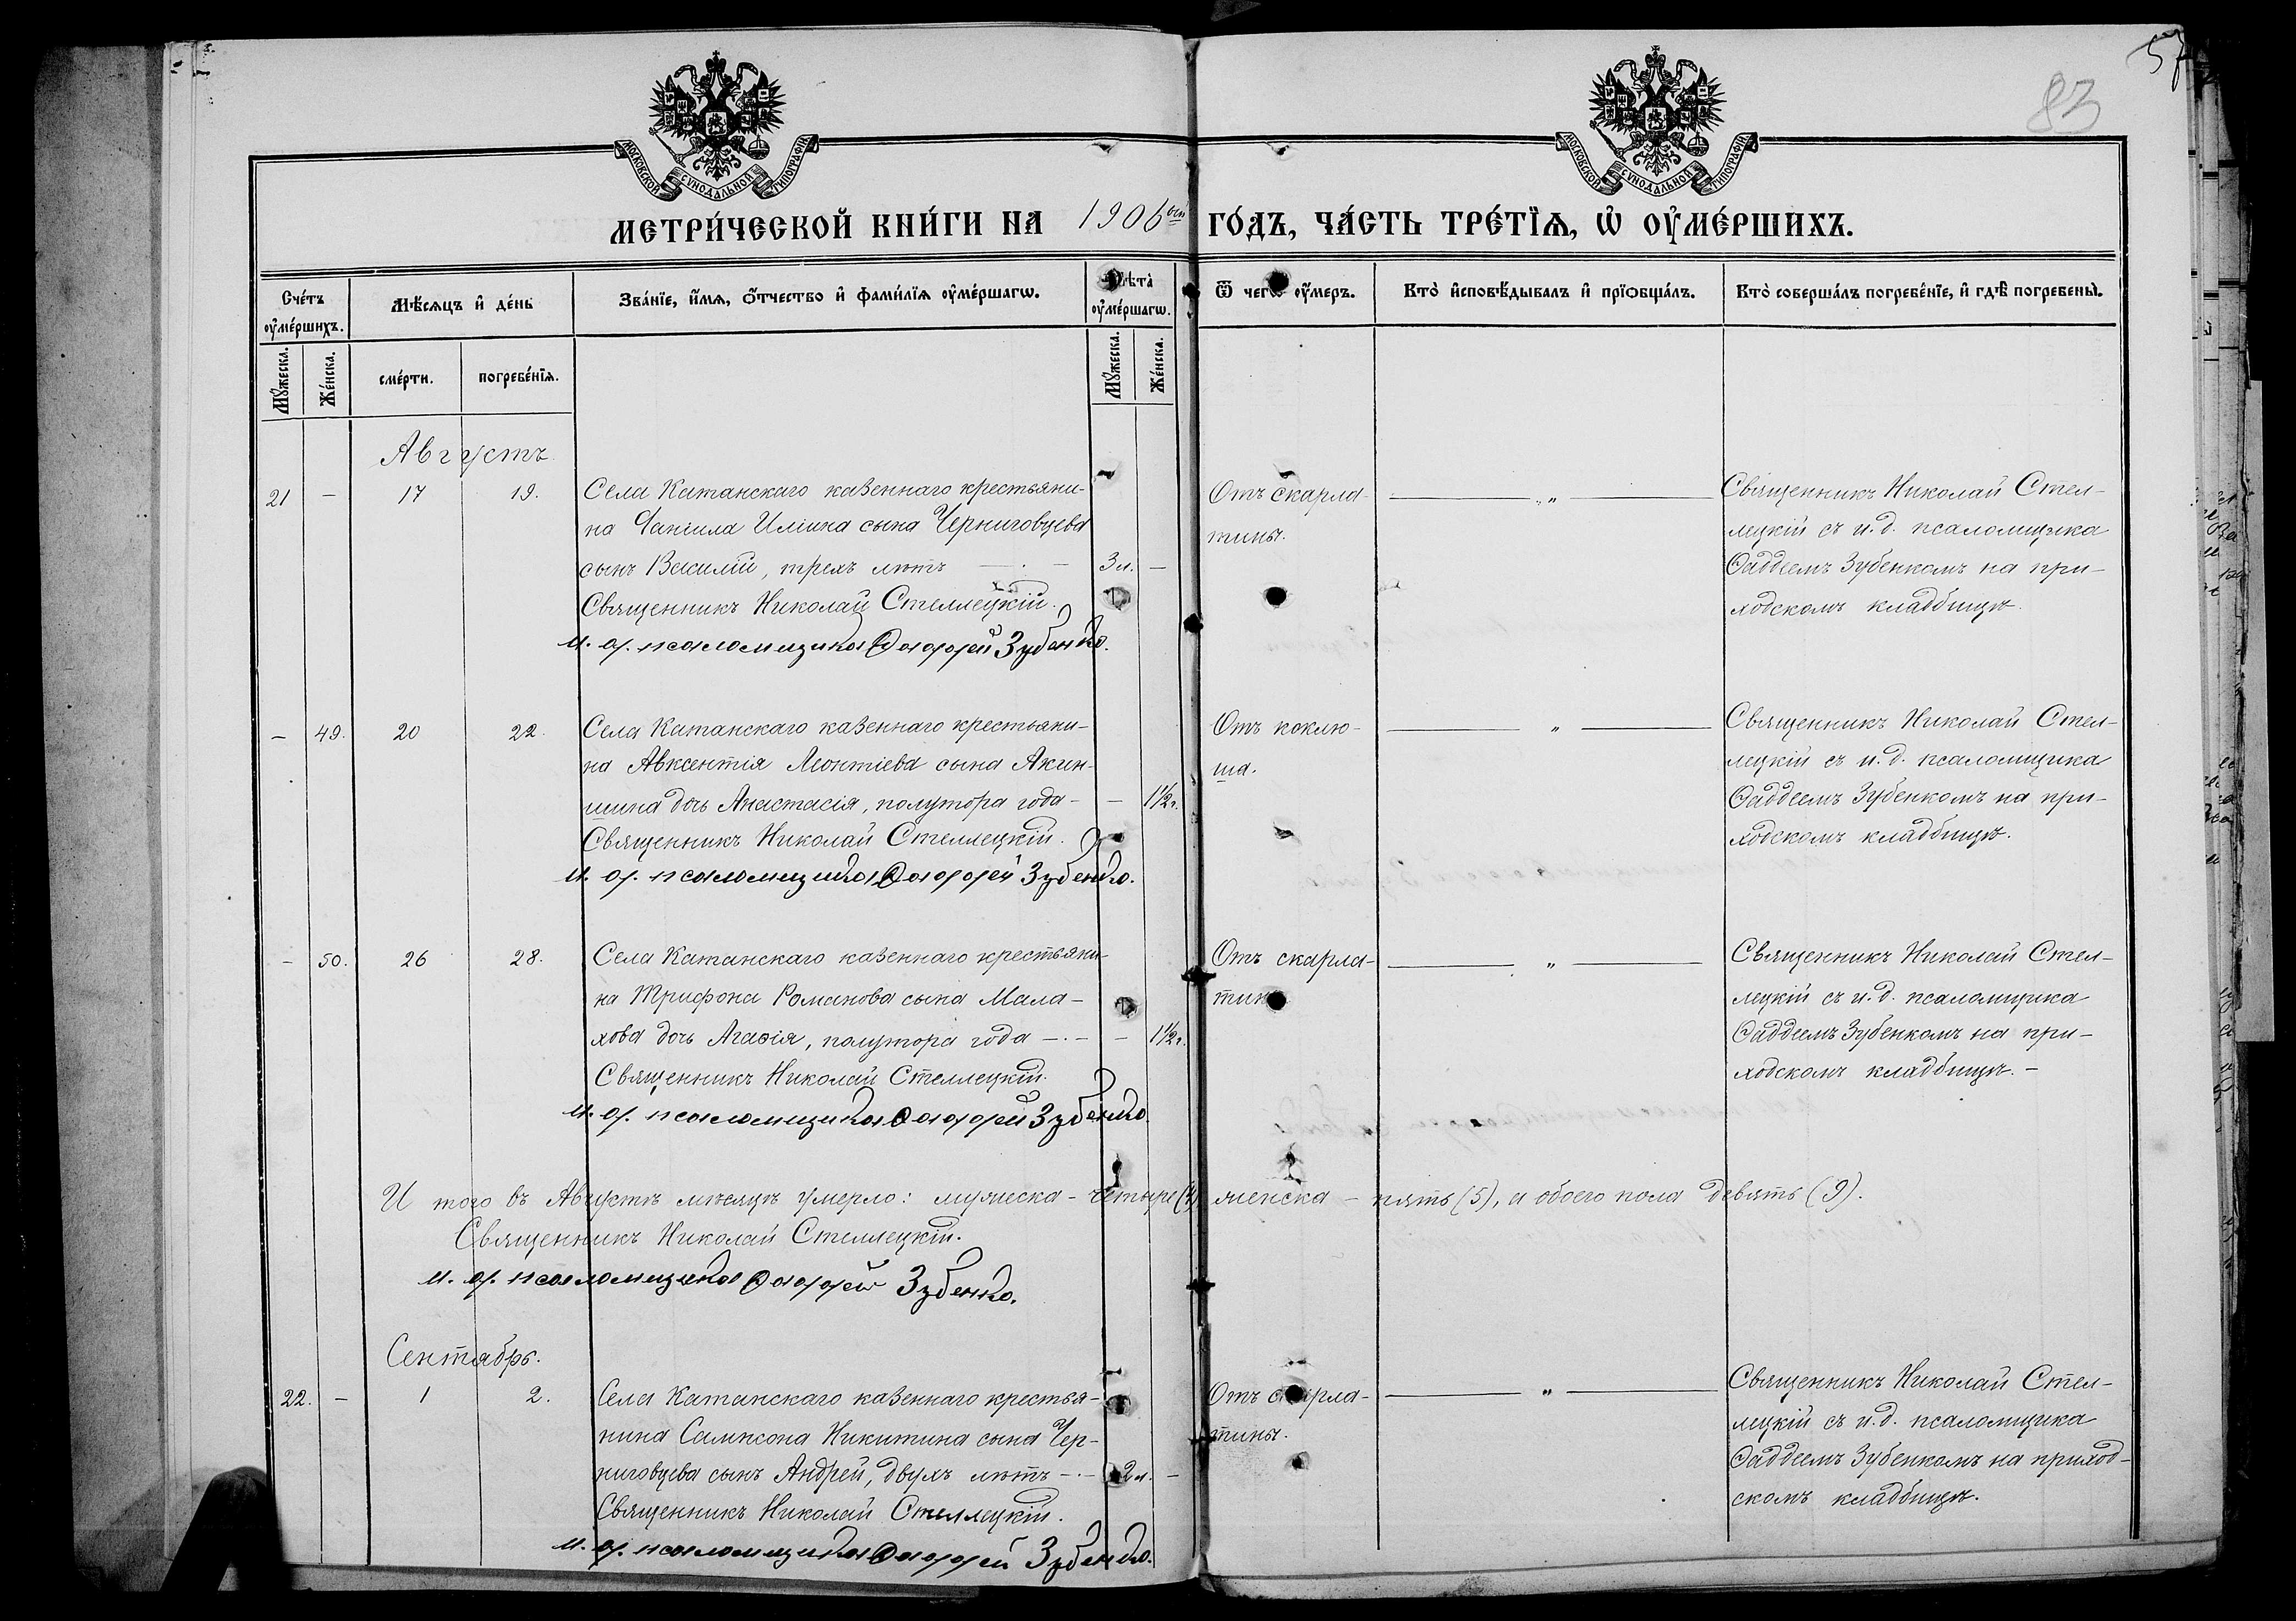 57
83
МОСКОВСКОЙ СѴНОДАЛЬНОЙ ТИПОГРАФІИ
МОСКОВСКОЙ СѴНОДАЛЬНОЙ ТИПОГРАФІИ
МЕТРИ́ЧЕСКОЙ КНИ́ГИ НА 1906 ой ГО́ДЪ, ЧА́СТЬ ТРЕ́ТЇѦ, Ѡ҆ ОУ҆МЕ́РШИХЪ.
Сче́тъ оу҆ме́ршихъ.
Мѣ́сѧцъ и҆ де́нь
Зва́нїе, и҆́мѧ, ѻ҆́тчество и҆ фами́лїѧ оу҆ме́ршагѡ.
Лѣта̀ оу҆ме́ршагѡ.
Ѿ чегѡ̀ оу҆́меръ.
Кто̀ и҆сповѣ́дывалъ и҆ прїѡбща́лъ.
Кто̀ соверша́лъ погребе́нїе, и҆ гдѣ̀ погребены̀.
Мꙋ́жеска.
Же́нска.
сме́рти.
погребе́нїѧ.
Мꙋ́жеска.
Же́нска.
Августъ
21 – 17 19. Села Катанскаго казеннаго крестьяни-
на Даніила Иліина сына Черниговцева
сынъ Василій, трехъ лѣтъ – . – 3 л. –
Священникъ Николай Стеллецкій.
и. д. псаломщика Фаддей Зубенко.
Отъ скарла-
тины.
„
Священникъ Николай Стел-
лецкій съ и. д. псаломщика
Фаддеемъ Зубенкомъ на при-
ходскомъ кладбищѣ.
– 49. 20 22. Села Катанскаго казеннаго крестьяни-
на Авксентія Леонтіева сына Акин-
шина дочь Анастасія, полутора года – – 1½ г.
Священникъ Николай Стеллецкій.
и. д. псаломщика Фаддей Зубенко.
Отъ коклю-
ша.
„
Священникъ Николай Стел-
лецкій съ и. д. псаломщика
Фаддеемъ Зубенкомъ на при-
ходскомъ кладбищѣ.
– 50. 26 28. Села Катанскаго казеннаго крестьяни-
на Трифона Романова сына Мала-
хова дочь Агаѳія, полутора года – . – – 1½ г.
Священникъ Николай Стеллецкій.
и. д. псаломщика Фаддей Зубенко.
Отъ скарла-
тины
„
Священникъ Николай Стел-
лецкій съ и. д. псаломщика
Фаддеемъ Зубенкомъ на при-
ходскомъ кладбищѣ. –
И того въ Августѣ мѣсяцѣ умерло: мужеска – четыре (4), женска – пять (5), а обоего пола девять (9).
Священникъ Николай Стеллецкій.
и. д. псаломщика Фаддей Зубенко.
Сентябрь.
22. – 1 2. Села Катанскаго казеннаго крестья-
нина Сампсона Никитина сына Чер-
ниговцева сынъ Андрей, двухъ лѣтъ – . – 2 л. –
Священникъ Николай Стеллецкій.
и. д. псаломщика Фаддей Зубенко.
Отъ скарла-
тины.
„
Священникъ Николай Стел-
лецкій съ и. д. псаломщика
Фаддеемъ Зубенкомъ на приход-
скомъ кладбищѣ.